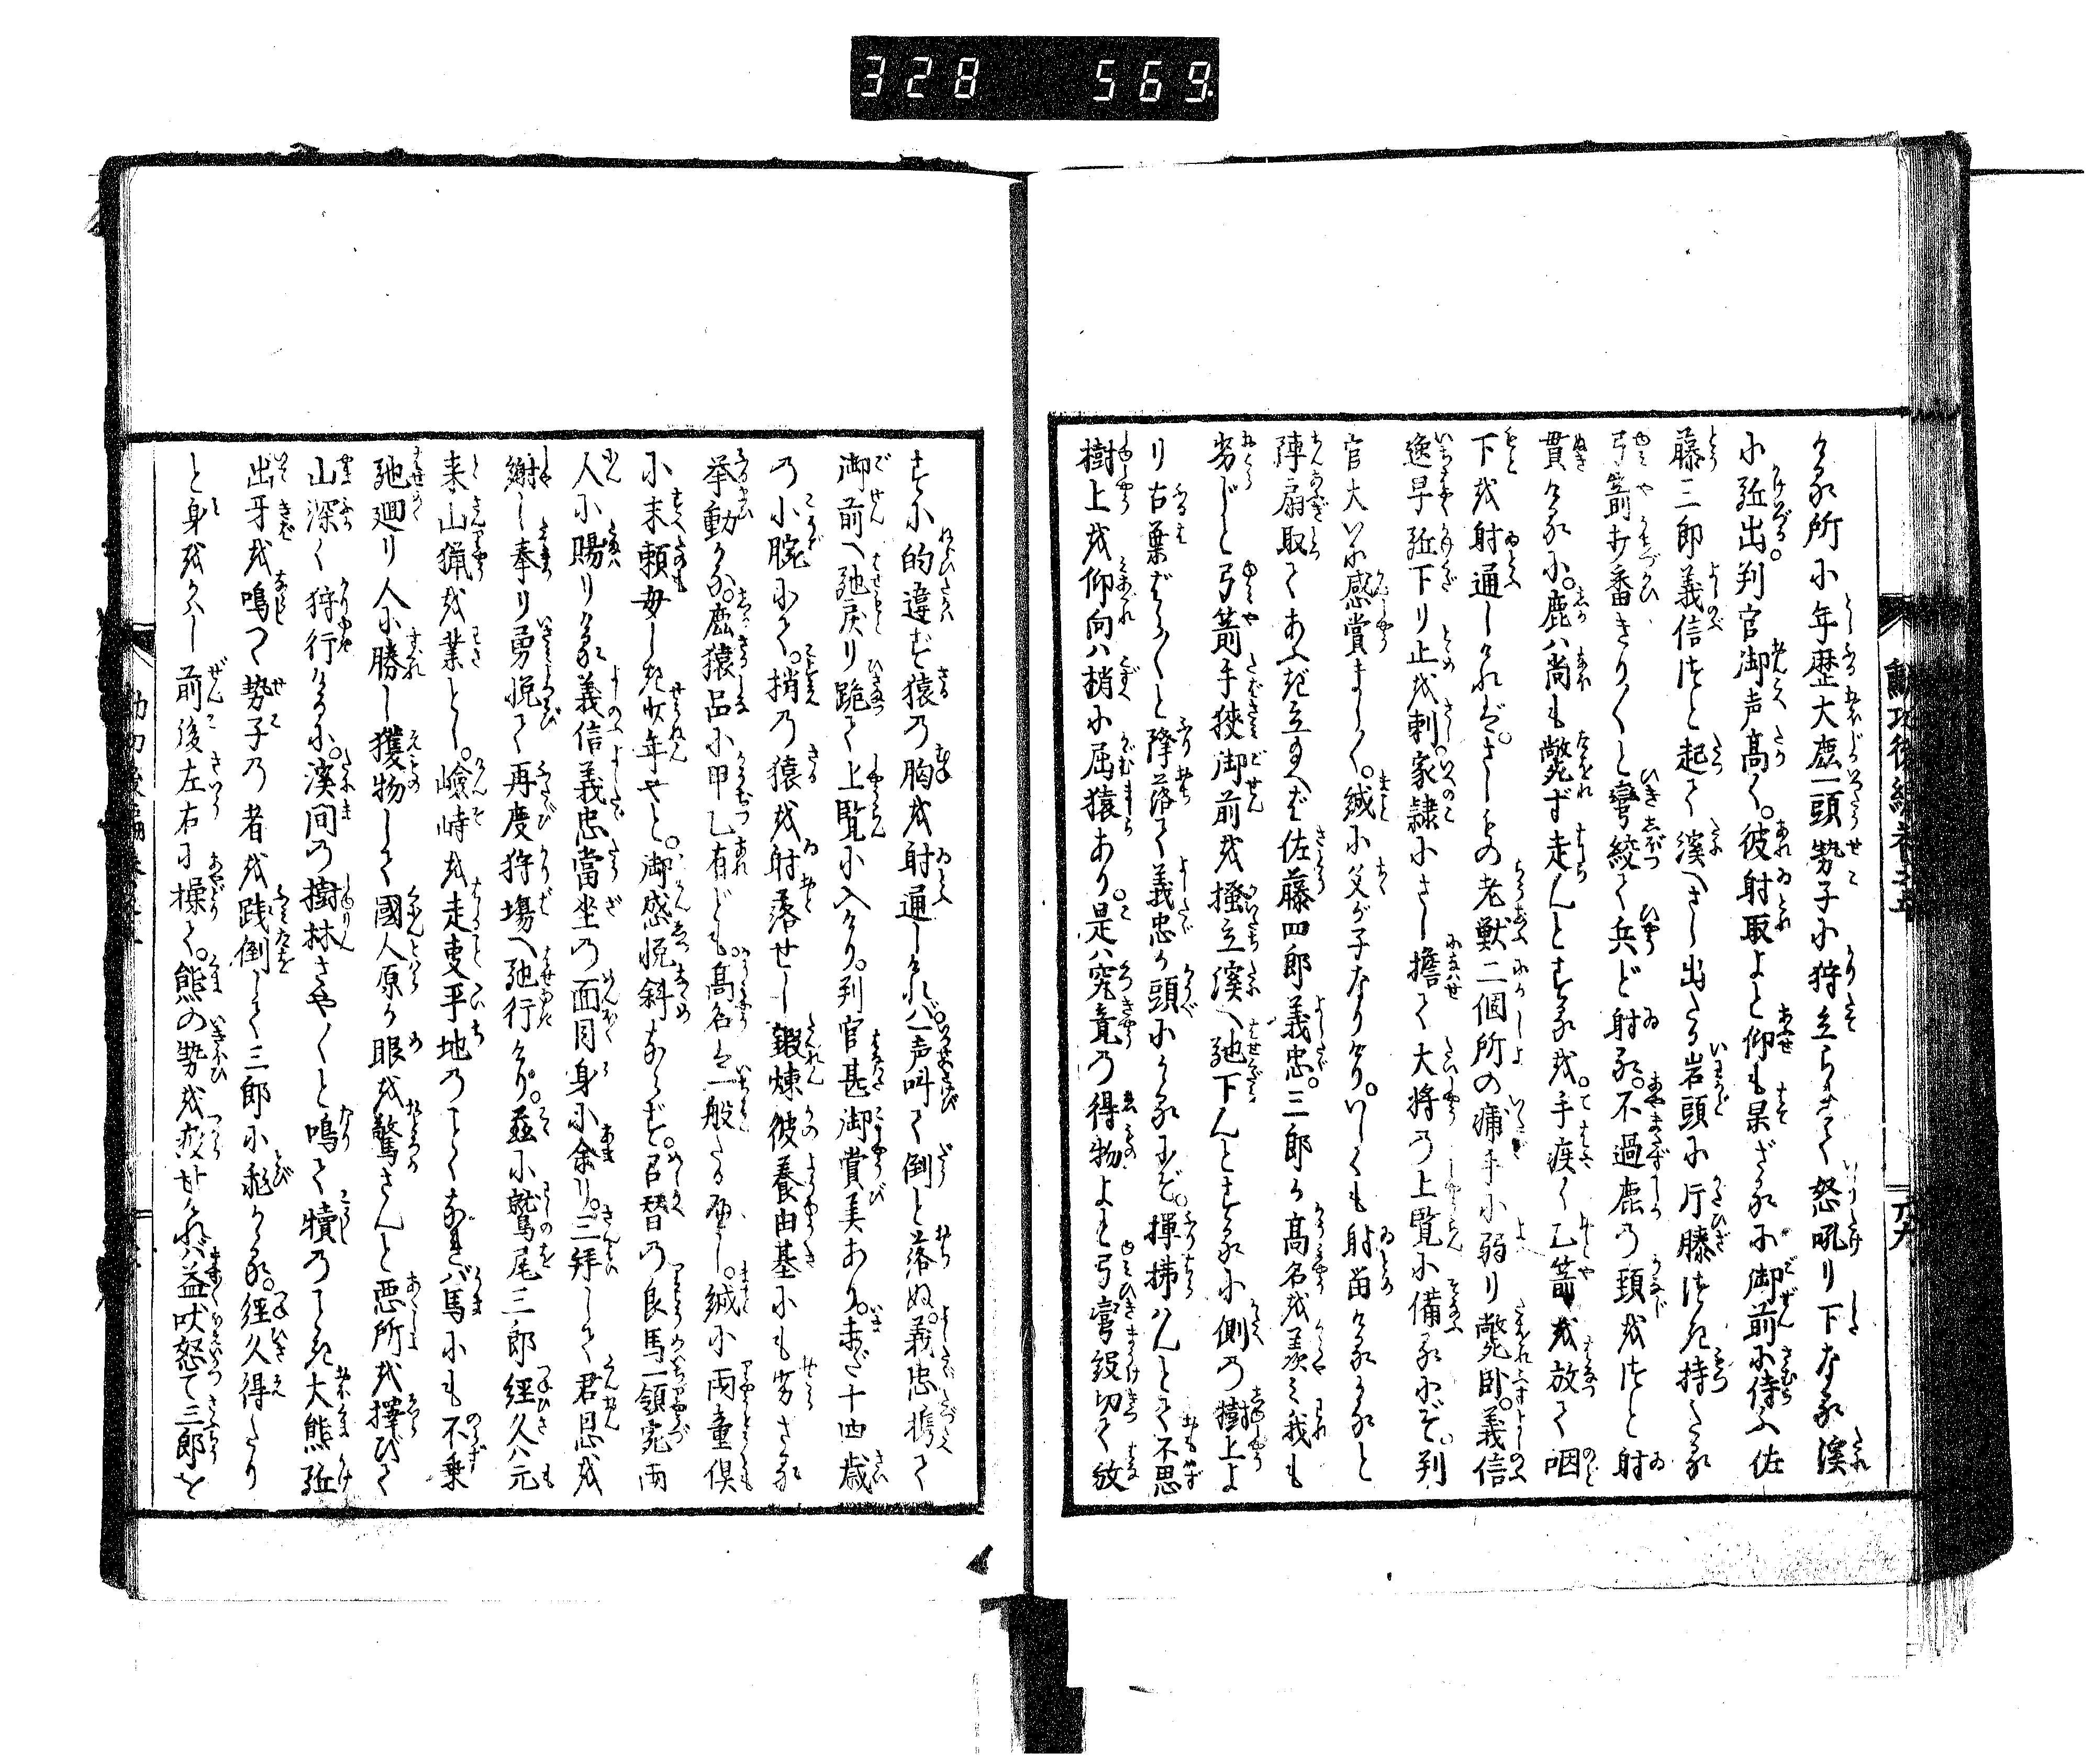 328 569
ける所に年歴大鹿一頭勢子に狩立られて怒吼り下なる渓
に㢠出。判官御声高く。彼射取よと仰も果ざるに御前に侍ふ佐
藤三郎義信はたと起て渓へさし出たる岩頭に片膝つき持たる
弓箭打番きり〱と彎絞て兵ど射る。不過鹿の頚をはたと射
貫けるに。鹿ハ尚も斃ず走んとするを。手疾く乙箭を放て咽
下を射通しければ。さしもの老獣二個所の痛手に弱り斃臥。義信
逸早く下り止を刺家隷にさし擔て大将の上覧に備るにぞ。判
官大いに感賞まし〱。誠に父が子なりけり。いしくも射留けるかなと
陣扇取てあふぎ立玉へば佐藤四郎義忠。三郎が高名を羨み我も
劣じと弓箭手狭御前を掻立渓へ馳下んとする小側の樹上よ
り古葉ばら〱と降落て義忠が頭にかゝるにぞ。揮拂はんとて不思
樹上を仰向ハ梢に屈猿あり。是ハ究竟の得物よと弓彎緩切て放
すに的違ず猿の胸を射通しければ。一声叫て倒と落ぬ。義忠携て
御前へ馳戻り跪て上覧に入けり。判官甚御賞美あり。未だ十四歳
の小腕にて。梢の猿を射落せし鍛煉彼養由基にも劣ざる
挙動かな。鹿猿品に甲乙有ども高名ハ一般たるべし。誠に両童倶
に末頼母しき少年やと。御感悦斜ならず。召替の良馬一領宛両
人に賜りける義信義忠當坐の面目身に余り。三拝して君恩を
謝し奉り勇悦て再度狩場へ馳行けり。茲に鷲尾三郎經久ハ元
来山猟を業とし。嶮峙を走叓平地のごとくなれバ馬にも不乗
馳廻り人に勝し獲物して國人原が眼を驚さんと悪所を擇びて
山深く狩行けるに。渓間の樹林さや〱と鳴て犢のごとき大熊
出牙を鳴つゝ勢子の者を践倒して三郎に飛かゝる。經久得たり
と身をかハし前後左右に操て。熊の勢を疲せければ益吠怒て三郎を